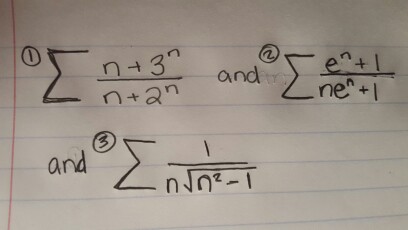 ① ∑ (n + 3ⁿ)/(n + 2ⁿ) and ② ∑ (eⁿ + 1)/(neⁿ + 1)
and ③ ∑ 1/(n√(n² - 1))